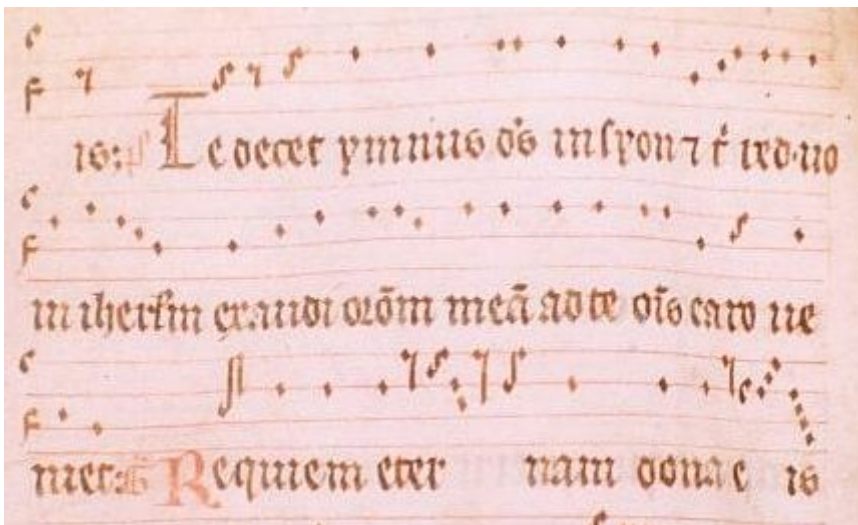 is: Te decet ymnus ds in syon ⁊ t̉ red. uo
tu in iherłm exaudi orōm meā ad te oīs caro ue
niet: Requiem eter nam dona e is